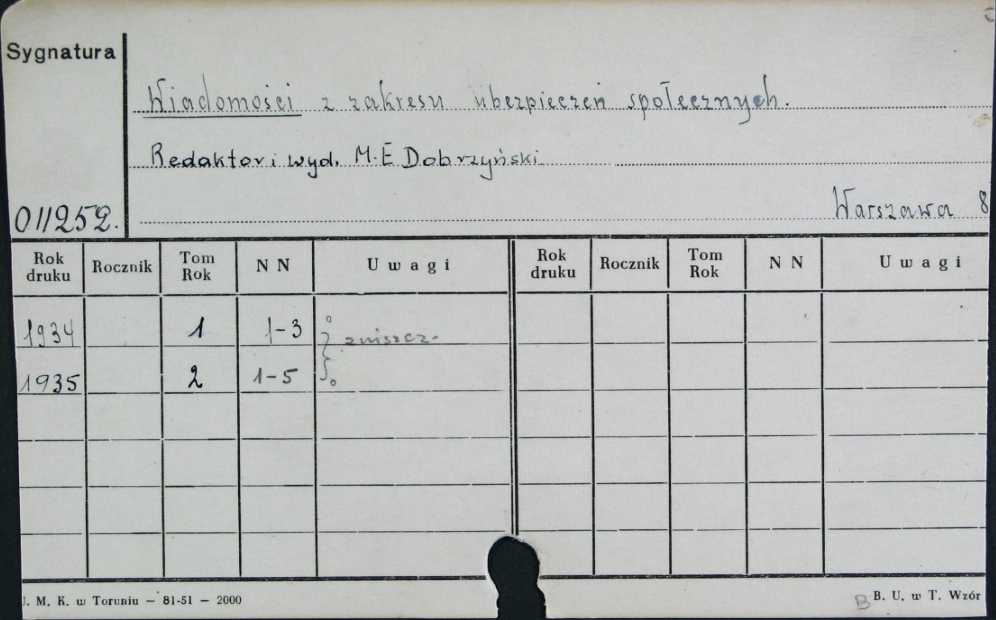 Sygnatura
Wiadomości z zakresu ubezpieczeń społecznych.
Redaktor i wyd. M.E Dobrzyński
011252.
Warszawa 8
Rok druku Rocznik Tom Rok N N Uwagi Rok druku Rocznik Tom Rok N N Uwagi
1934 1 1-3 zniszcz.
1935 2 1-5
J. M. K. w Toruniu — 81-51 — 2000
B B. U. w T. Wzór